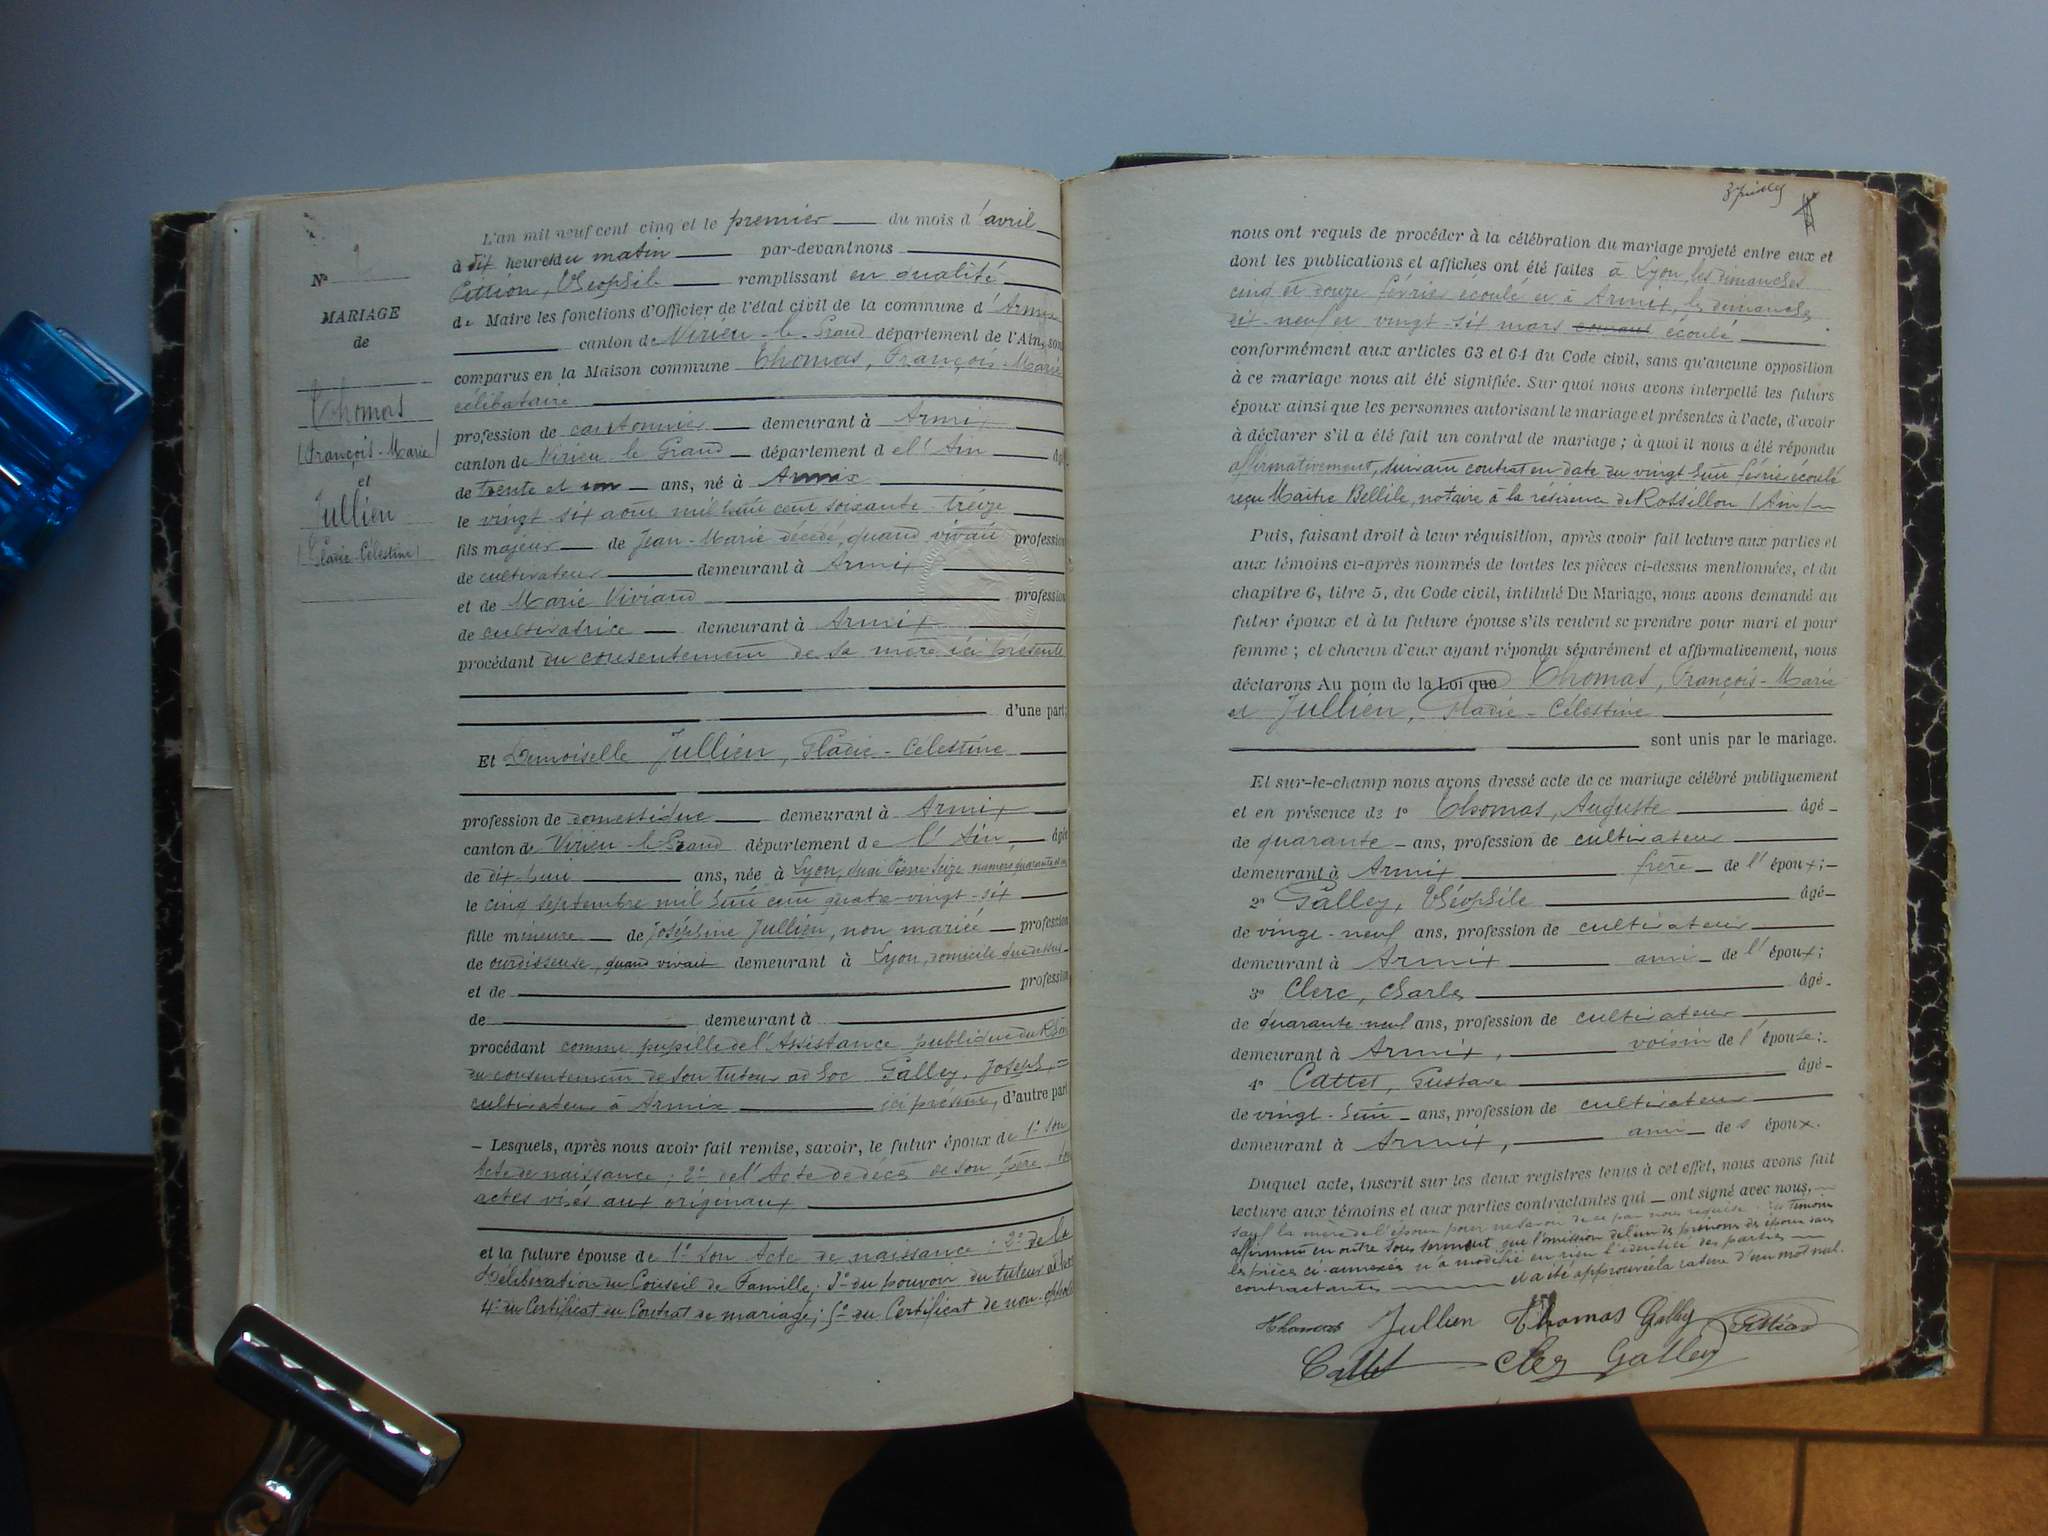 L'an mil neuf cent cinq et le premier du mois d'avril
à dix heures du matin par-devant nous
Pittion, Théophile remplissant en qualité
de Maire les fonctions d'Officier de l'état civil de la commune d'Armix
canton de Virieu-le-Grand département de l'Ain, sont
comparus en la Maison commune Thomas, François-Marie
célibataire
profession de cantonnier demeurant à Armix
canton de Virieu le Grand département de l'Ain âgé
de trente et un ans, né à Armix
le vingt six août mil huit cent soixante-treize
fils majeur de Jean-Marie décédé, quand vivait profession
de cultivateur demeurant à Armix
et de Marie Viviand profession
de cultivatrice demeurant à Armix
procédant du consentement de sa mère ici présente
d'une part;
Et Demoiselle Jullien, Cladie-Célestine
profession de domestique demeurant à Armix
canton de Virieu-le-Grand département de l'Ain âgée
de dix-huit ans, née à Lyon, quai Pierre Scize, numéro quarante et un
le cinq septembre mil huit cent quatre-vingt-six
fille mineure de Joséphine Jullien, non mariée profession
de ourdisseuse, quand vivait demeurant à Lyon, domicile que dessus
et de profession
de demeurant à
procédant comme pupille de l'Assistance publique du Rhône
du consentement de son tuteur ad hoc Galley, Joseph,
cultivateur à Armix ici présent, d'autre part
– Lesquels, après nous avoir fait remise, savoir, le futur époux de 1° son
Acte de naissance; 2° de l'Acte de décès de son père,
actes visés aux originaux
et la future épouse de 1° son Acte de naissance; 2° de la
Délibération du Conseil de Famille; 3° du pouvoir du tuteur ad hoc
4° du Certificat du Contrat de mariage; 5° du Certificat de non-opposition
N° 2
MARIAGE
de
Thomas
(François-Marie)
et
Jullien
(Cladie-Célestine)
nous ont requis de procéder à la célébration du mariage projeté entre eux et
dont les publications et affiches ont été faites à Lyon, les dimanches
cinq et douze février écoulé et à Armix, les dimanches
dix-neuf et vingt-six mars courant écoulé
conformément aux articles 63 et 64 du Code civil, sans qu'aucune opposition
à ce mariage nous ait été signifiée. Sur quoi nous avons interpellé les futurs
époux ainsi que les personnes autorisant le mariage et présentes à l'acte, d'avoir
à déclarer s'il a été fait un contrat de mariage; à quoi il nous a été répondu
affirmativement, suivant contrat en date du vingt huit février écoulé
reçu Maître Bellile, notaire à la résidence de Rossillon (Ain)
Puis, faisant droit à leur réquisition, après avoir fait lecture aux parties et
aux témoins ci-après nommés de toutes les pièces ci-dessus mentionnées, et du
chapitre 6, titre 5, du Code civil, intitulé Du Mariage, nous avons demandé au
futur époux et à la future épouse s'ils veulent se prendre pour mari et pour
femme; et chacun d'eux ayant répondu séparément et affirmativement, nous
déclarons Au nom de la Loi que Thomas, François-Marie
et Jullien, Cladie-Célestine
sont unis par le mariage.
Et sur-le-champ nous avons dressé acte de ce mariage célébré publiquement
et en présence de 1° Thomas, Auguste âgé
de quarante ans, profession de cultivateur
demeurant à Armix frère de l'époux;
2° Galley, Théophile âgé
de vingt-neuf ans, profession de cultivateur
demeurant à Armix ami de l'époux;
3° Clerc, Charles âgé
de quarante-neuf ans, profession de cultivateur
demeurant à Armix, voisin de l'épouse;
4° Cattet, Gustave âgé
de vingt-huit ans, profession de cultivateur
demeurant à Armix, ami des époux.
Duquel acte, inscrit sur les deux registres tenus à cet effet, nous avons fait
lecture aux témoins et aux parties contractantes qui ont signé avec nous,
sauf la mère de l'époux pour ne savoir de ce par nous requise. Les témoins
affirment en outre sous serment que l'omission de l'un des prénoms de époux dans
les pièces ci-annexées n'a modifié en rien l'identité des parties
contractantes et a été approuvée la rature d'un mot nul.
Thomas Jullien Thomas Galley Pittion
Cattet Clerc Galley